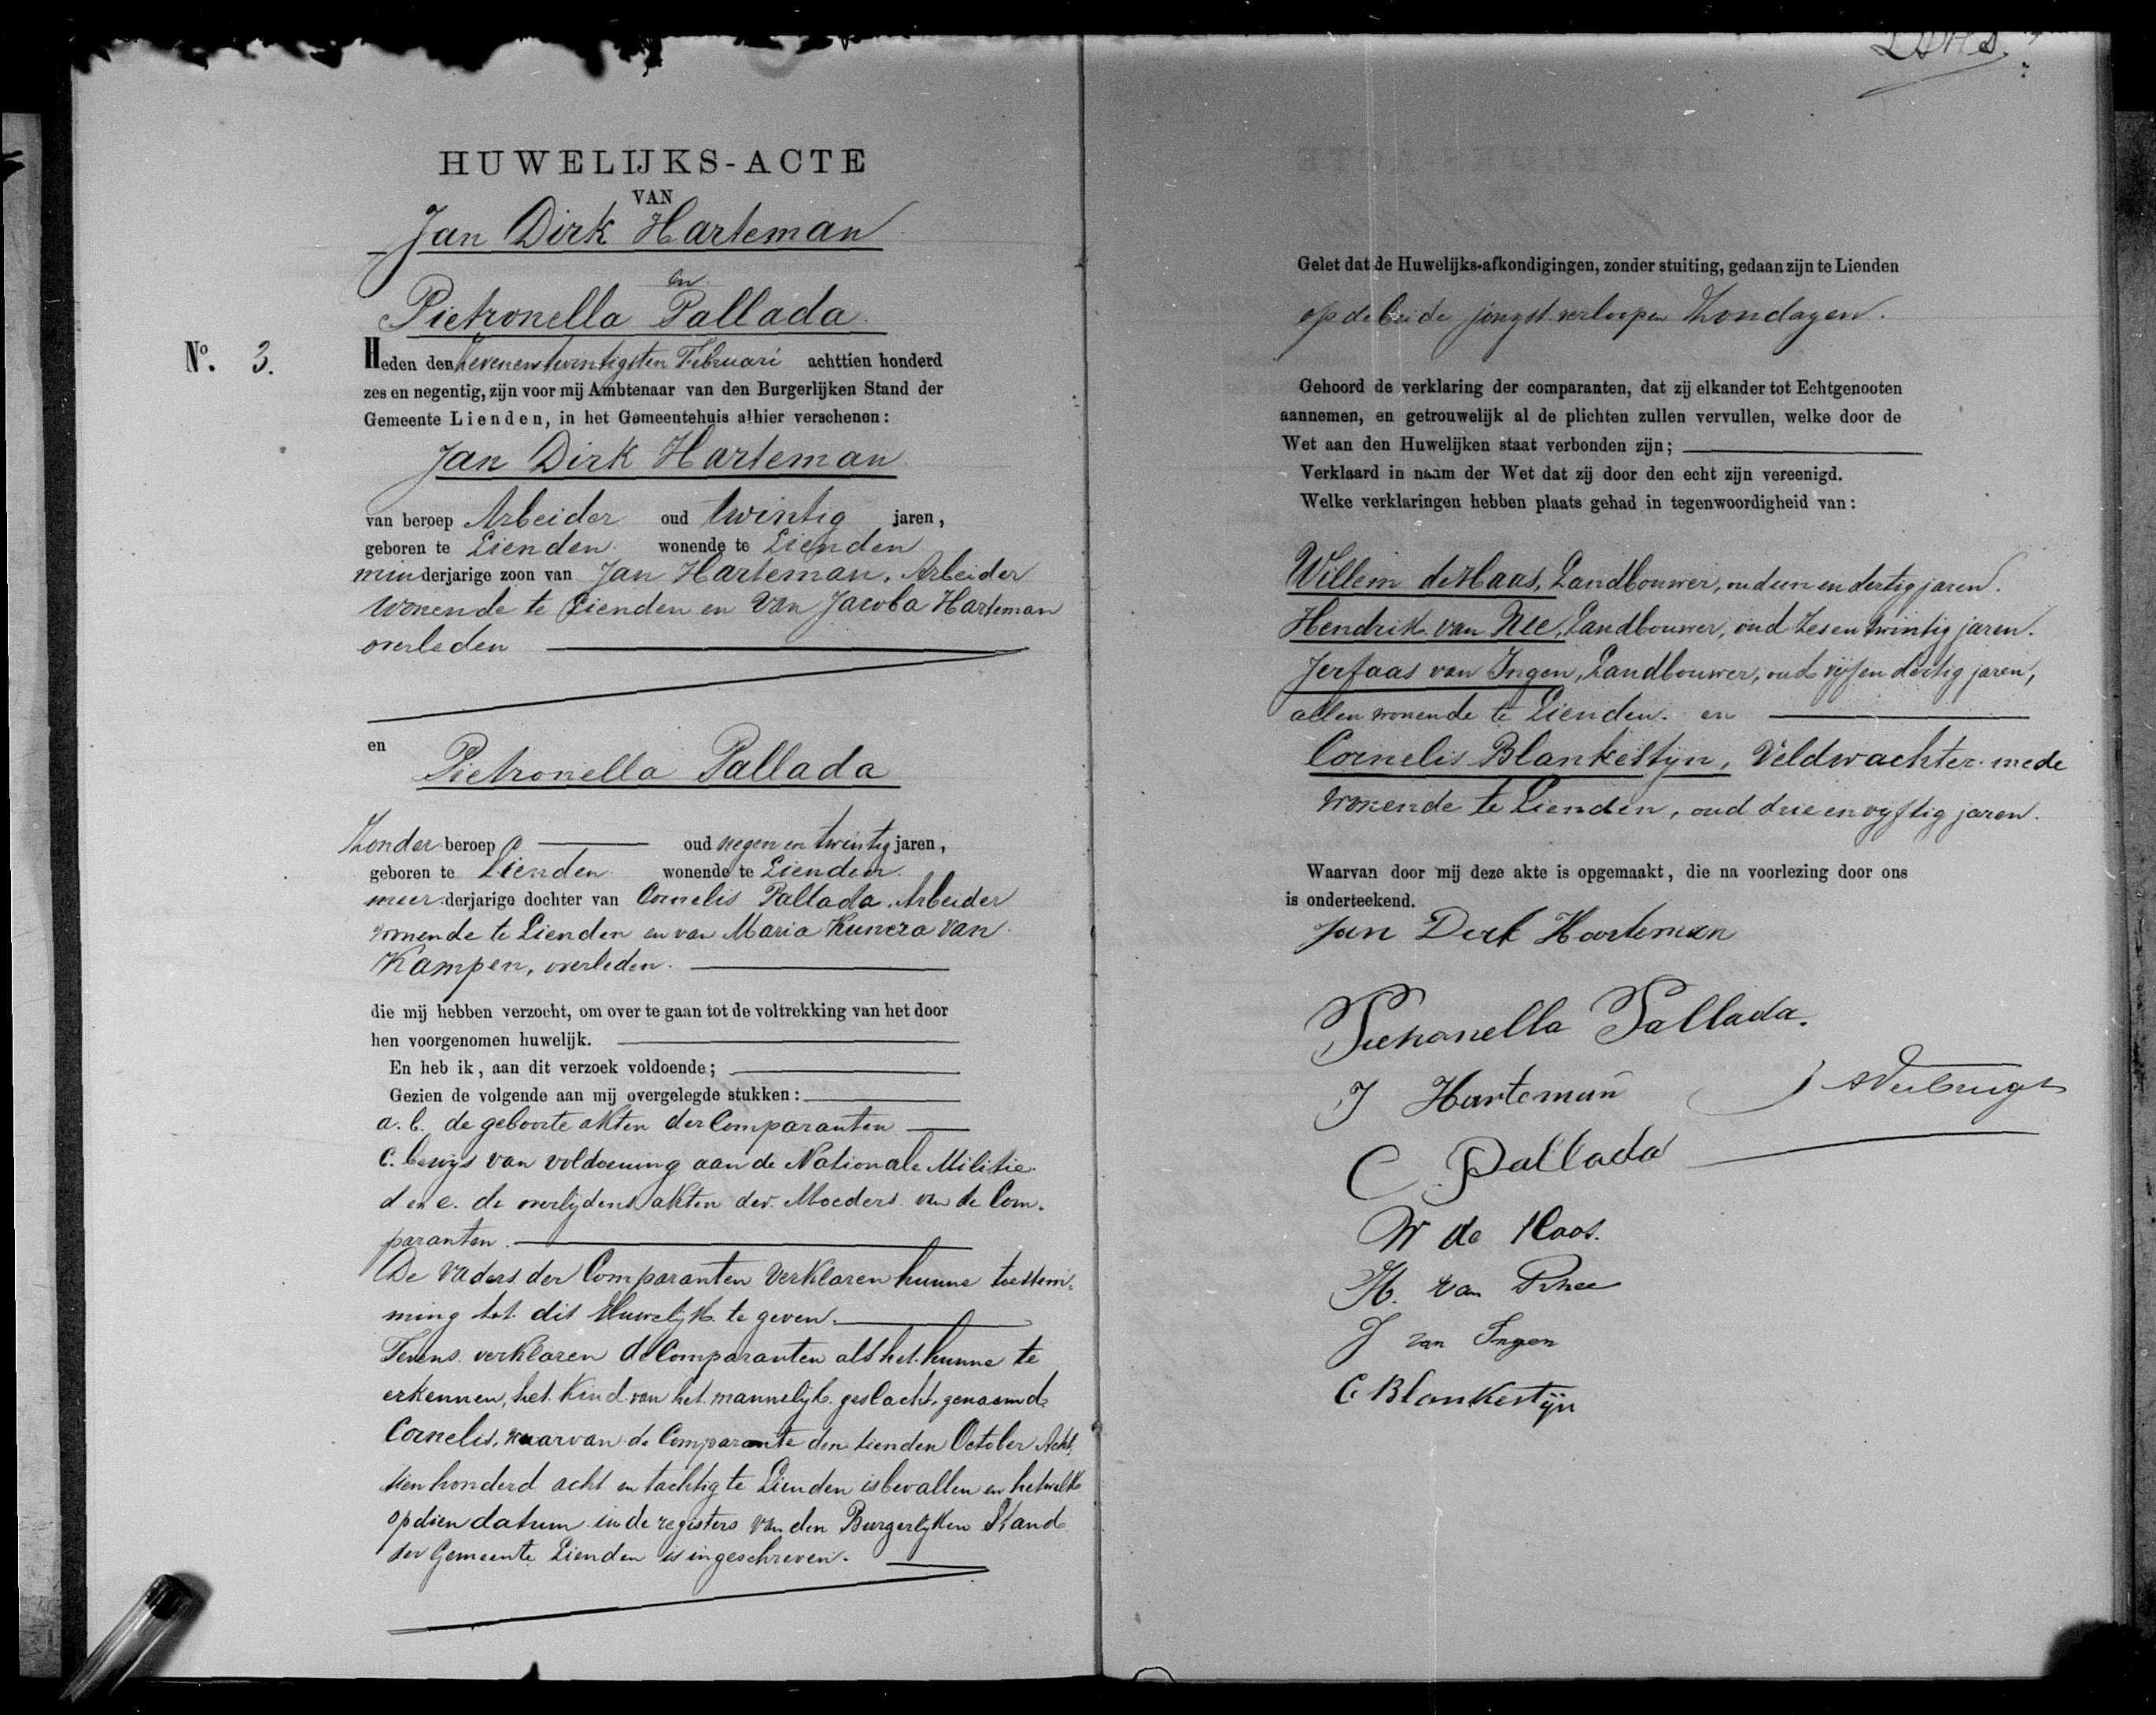 HUWELIJKS-ACTE
VAN
Jan Dirk Harteman
en
Pietronella Pallada
No. 3.
Heden den Zevenentwintigsten Februari achttien honderd
zes en negentig, zijn voor mij Ambtenaar van den Burgerlijken Stand der
Gemeente Lienden, in het Gemeentehuis alhier verschenen:
Jan Dirk Harteman
van beroep Arbeider oud twintig jaren,
geboren te Lienden wonende te Lienden
minderjarige zoon van Jan Harteman, Arbeider
wonende te Lienden en van Jacoba Harteman
overleden
en
Pietronella Pallada
Zonder beroep oud negen en twintig jaren,
geboren te Lienden wonende te Lienden
meerderjarige dochter van Cornelis Pallada, Arbeider
wonende te Lienden en van Maria Kunera van
Kampen, overleden.
die mij hebben verzocht, om over te gaan tot de voltrekking van het door
hen voorgenomen huwelijk.
En heb ik, aan dit verzoek voldoende;
Gezien de volgende aan mij overgelegde stukken:
a. b. de geboorte akten der Comparanten
c. bewijs van voldoening aan de Nationale Militie
d en e. de overlijdens akten der Moeders van de Com-
paranten.
De vaders der Comparanten verklaren hunne toestem-
ming tot dit Huwelijk te geven.
Tevens verklaren de Comparanten als het hunne te
erkennen, het Kind van het mannelijk geslacht, genaamd
Cornelis, waarvan de Comparante den tienden October Acht-
tien honderd acht en tachtig te Lienden is bevallen en hetwelk
op dien datum in de registers van den Burgerlijken Stand
der Gemeente Lienden is ingeschreven.
Gelet dat de Huwelijks-afkondigingen, zonder stuiting, gedaan zijn te Lienden
op de beide jongst verloopen Zondagen.
Gehoord de verklaring der comparanten, dat zij elkander tot Echtgenooten
aannemen, en getrouwelijk al de plichten zullen vervullen, welke door de
Wet aan den Huwelijken staat verbonden zijn;
Verklaard in naam der Wet dat zij door den echt zijn vereenigd.
Welke verklaringen hebben plaats gehad in tegenwoordigheid van:
Willem de Haas, Landbouwer, oud een en dertig jaren.
Hendrik van Ree, Landbouwer, oud Zes en twintig jaren.
Jerfaas van Ingen, Landbouwer, oud vijf en dertig jaren,
allen wonende te Lienden. en
Cornelis Blankestijn, Veldwachter mede
wonende te Lienden, oud drie en vijftig jaren.
Waarvan door mij deze akte is opgemaakt, die na voorlezing door ons
is onderteekend.
Jan Derk Harteman
Pietronella Pallada.
J Harteman
C Pallada
W de Haas.
H. van Rhee
J van Ingen
C. Blankestijn